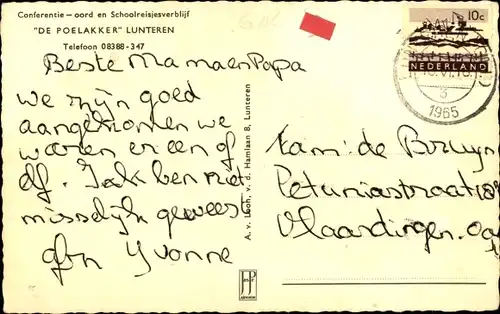 Conferentie — oord en Schoolreisjesverblijf
"DE POELAKKER" LUNTEREN
Telefoon 08388-347
Beste Mama en Papa
we zijn goed
aangekomen we
waren er een of
Ik ben niet
misselijk geweest
Yvonne
A. v. Loon, v. d. Hamlaan 8, Lunteren
10c
NEDERLAND
3
1965
Fam: de Bruyn
Petuniastraat
Vlaardingen.